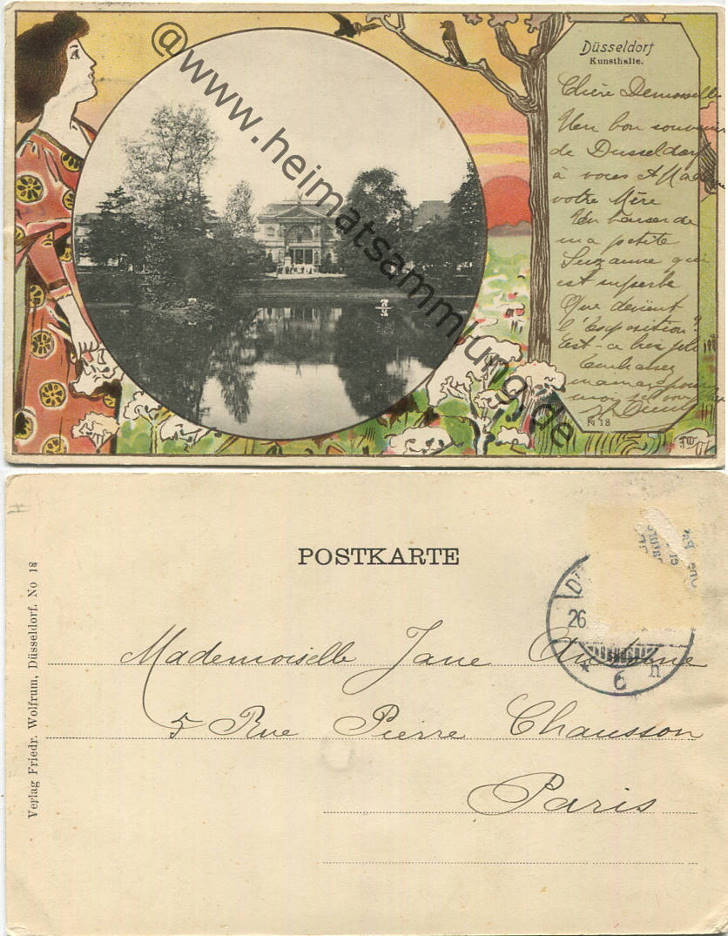 @www.heimatsammlung.de
Düsseldorf
Kunsthalle.
Chère Demoiselle
Un bon souvenir
de Dusseldorf
à vous et Madame
votre Mère
Un baiser de
ma petite
Suzanne qui
est superbe
Que devient
l'Exposition?
Est-ce bien
Embrassez
maman pour
moi
No 18
FW
POSTKARTE
Verlag Friedr. Wolfrum, Düsseldorf. No 18
26.
6 n
Mademoiselle Jane
5 Rue Pierre Chausson
Paris